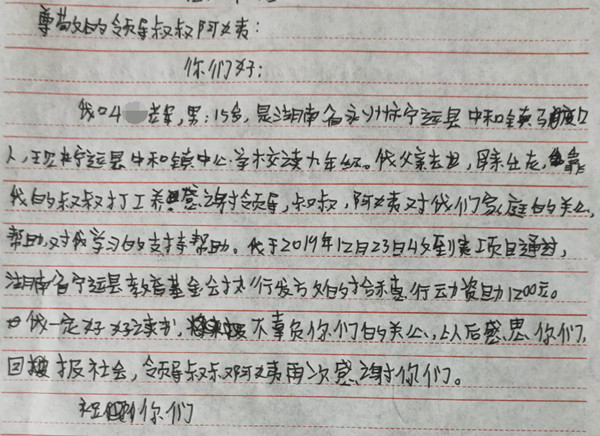 尊敬的领导叔叔阿姨:
你们好:
我叫 男:15岁,是湖南省永州市宁远县中和镇
人,现在宁远县中和镇中心学校读九年级。我父亲去世,
我的叔叔打工养 感谢领导,叔叔,阿姨对我们家庭的关心,
帮助,对我学习的支持帮助。我于2019年12月23日收到 项目通过,
湖南省宁远县教育基金会 行发方 的 行动资助1200元。
我一定好好读书, 不辜负你们的关心,以后感恩你们,
回报社会,领导叔叔阿姨再次感谢你们。
祝 你们